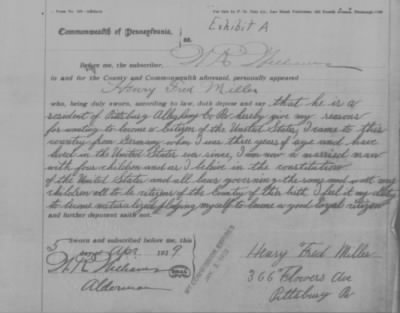 Exhibit A
Commonwealth of Pennsylvania,
ss.
Before me, the subscriber,
in and for the County and Commonwealth aforesaid, personally appeared
Henry Fred Miller
who, being duly sworn, according to law, doth depose and say that he is a
resident of Pittsburg Allegheny Co Pa. hereby give my reasons
for wanting to become a Citizen of the United States, I came to this
country from Germany when I was three years of age and have
lived in the United States ever since, I am now a married man
with four children and as I believe in the constitution
of the United States and all laws governing the same and want my
children all to be citizens of the Country of their birth I feel it my duty
to become naturalized pledging myself to become a good loyal citizen
and further deponent saith not.
Sworn and subscribed before me, this
3 day of Apr 1919
Alderman
Henry Fred Miller
366 Flowers Ave
Pittsburg Pa